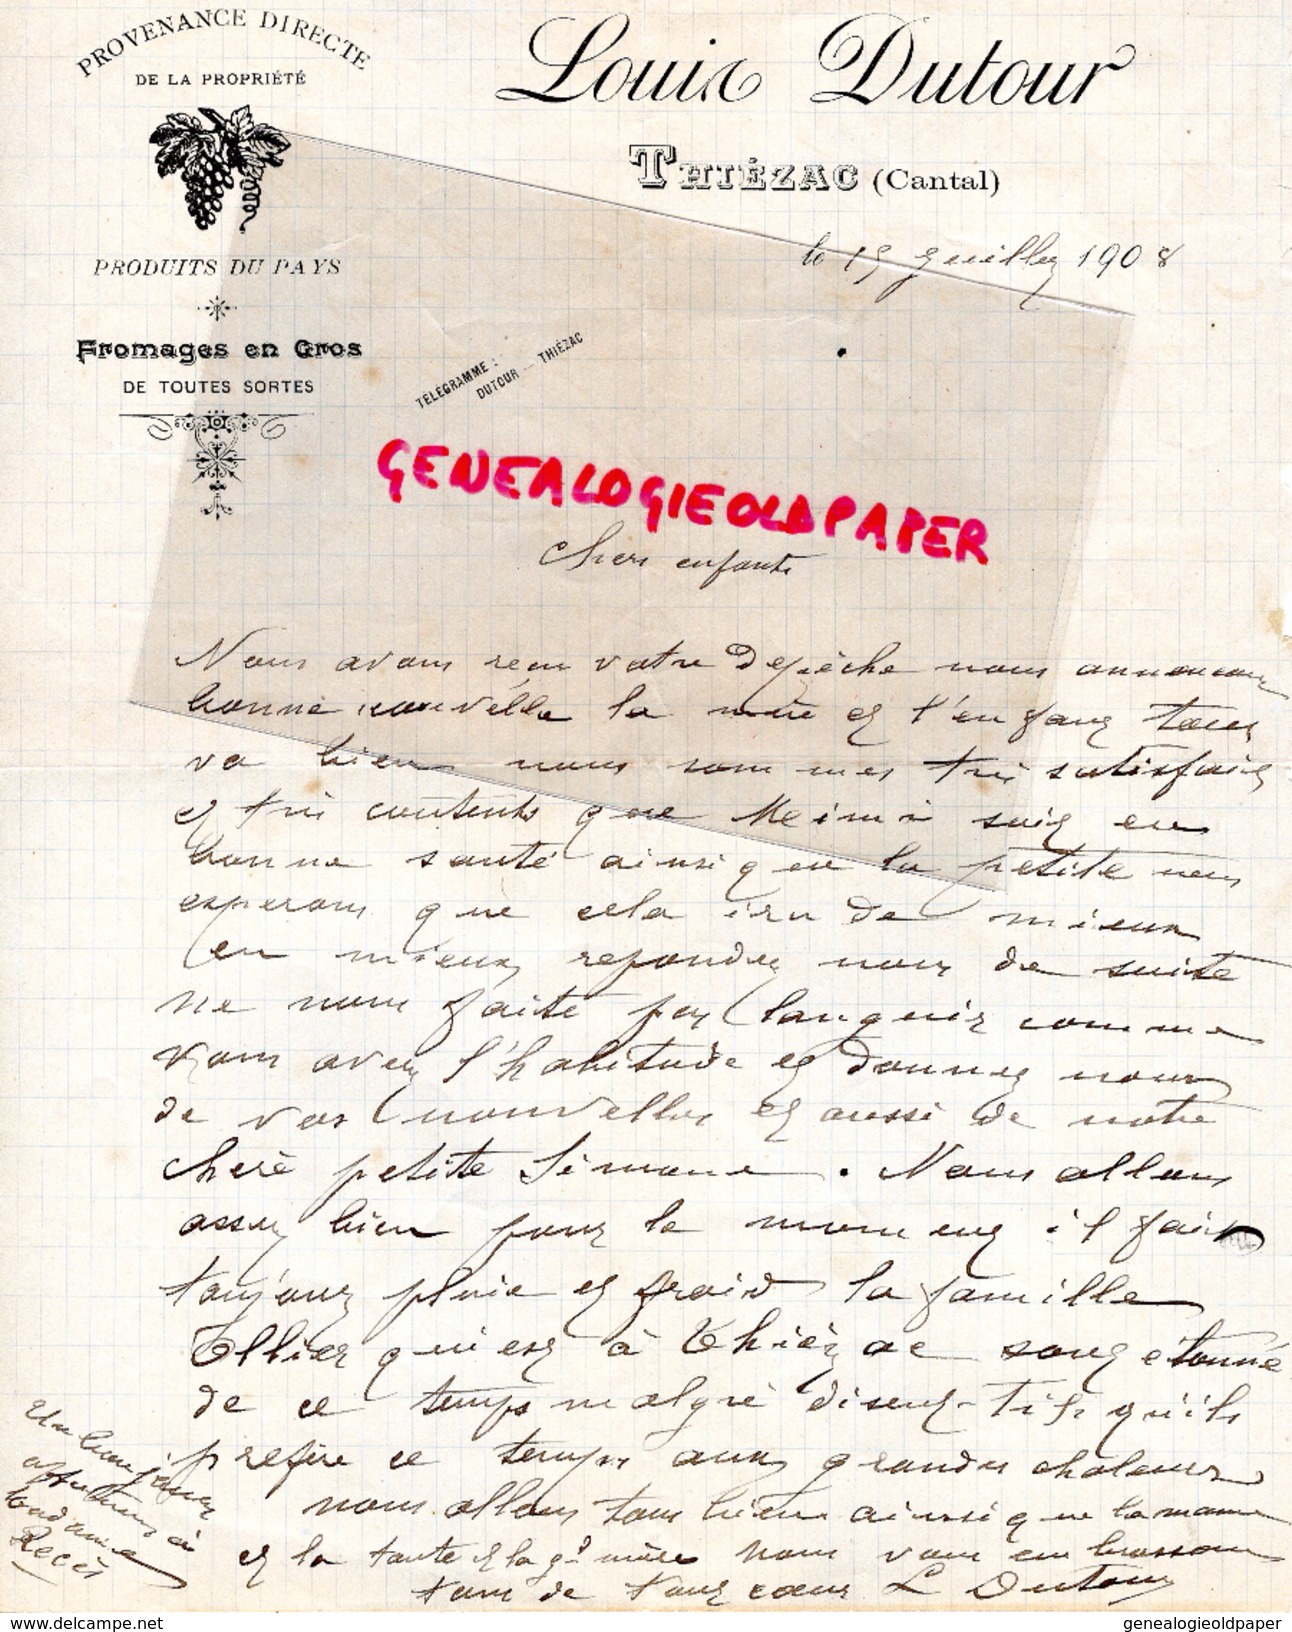 PROVENANCE DIRECTE
DE LA PROPRIÉTÉ
PRODUITS DU PAYS
Fromages en Gros
DE TOUTES SORTES
Louis Dutour
THIÉZAC (Cantal)
le 15 Juillez 1908
TÉLÉGRAMME :
DUTOUR _ THIÉZAC
GENEALOGIEOLDPAPER
Chers enfants
Nous avons reçu votre Depèche nous annoncans
bonne nouvélle la mère et l'enfang toug
va bien nous sommes trés satisfaig
et trés contents que Mimi soig en
bonne santé ainsi que la petite nous
esperons que cela ira de mieux
en mieux repondez nous de suite
ne nous faite pas languir comme
vous avez l'habitude et donnez nous
de vos nouvelles et aussi de notre
cherè petite Simone . Nous allons
assez bien pour le momeng il fait
toujours pluie et froid la famille
Ollier qui est à Thiézac song étonné
de ce temps malgré diseng-ils qu'ils
prefére ce temps aux grandes chaleurs
nous allons tous bien ainsi que la mama
et la tante et la gd mère nous vous embrassons
tous de tout cœur L Dutour
Une bonne
à
Recès
genealogieoldpaper